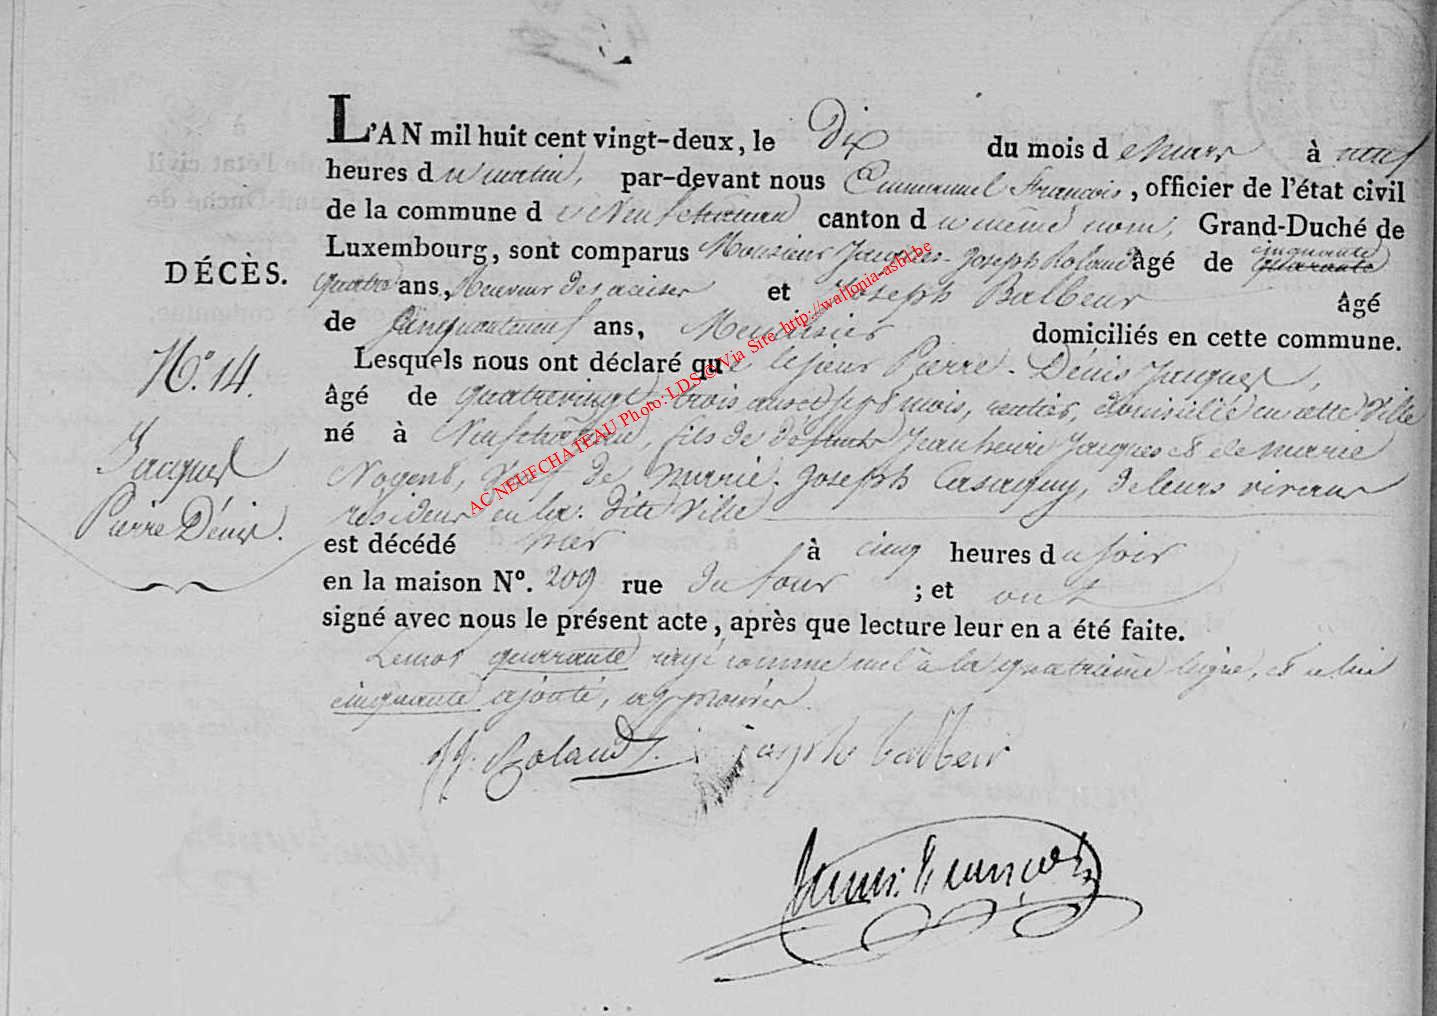 L'AN mil huit cent vingt-deux, le Dix du mois d e Mars à neuf
heures d u matin, par-devant nous Emmanuel François, officier de l'état civil
de la commune d e Neufchateau canton d u même nom, Grand-Duché de
Luxembourg, sont comparus Monsieur Jacques-Joseph Roland âgé de quarante cinquante
DÉCÈS.
quatre ans, Receveur des accises et Joseph Balbeur âgé
de Cinquanteneuf ans, Menuisier domiciliés en cette commune.
N.° 14.
Lesquels nous ont déclaré que le sieur Pierre-Dénis Jacques,
âgé de quatrevingt-trois ans et sept mois, rentier, domicilié en cette Ville
Jacques
Pierre Dénis.
né à Neufchateau, fils de défunts Jean henri Jacques et de marie
Nogent, Veuf de Marie-Joseph, de leurs vivans
résideus en la dite Ville
est décédé hier à cinq heures d u soir
en la maison N°. 209 rue du four ; et ont
signé avec nous le présent acte, après que lecture leur en a été faite.
Le mot quarante rayé comme nul à la quatrième ligne, et celui
cinquante ajouté, approuvés.
JJ. Roland joseph balbeur
Emm: François
AC NEUFCHATEAU Photo: LDS © Via Site http://wallonia-asbl.be